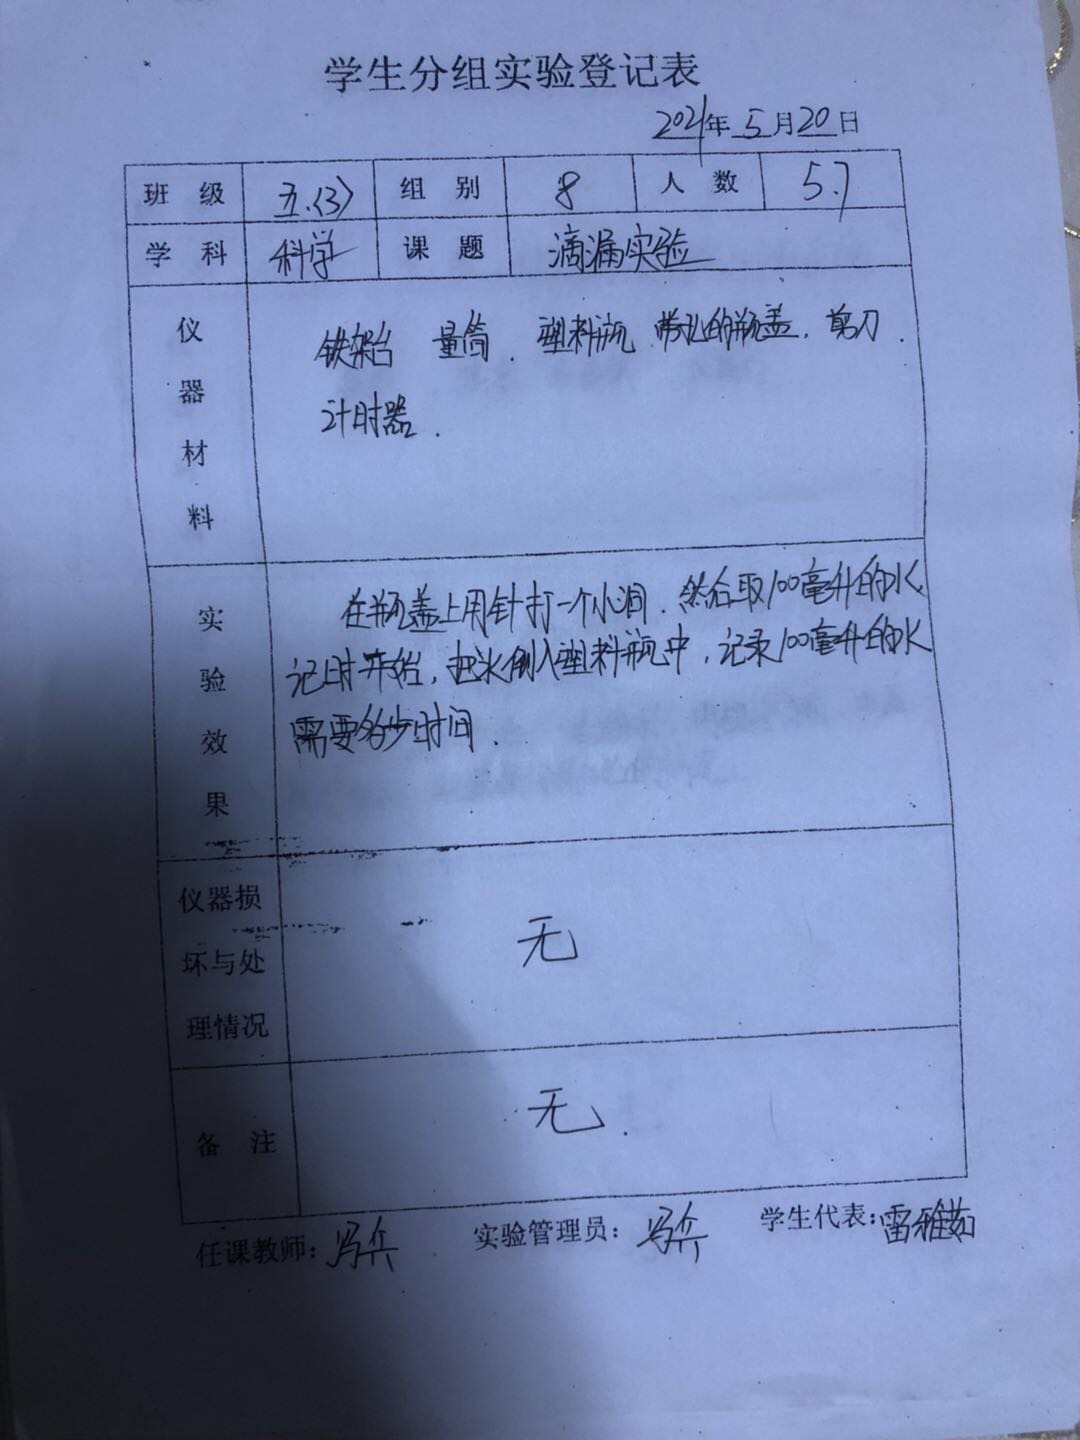 学生分组实验登记表
2021年5月20日
班级 五.(3) 组别 8 人数 57
学科 科学 课题 滴漏实验
仪器材料
铁架台 量筒. 塑料瓶 的瓶盖. 剪刀.
计时器.
实验效果
在瓶盖上用针打一个小洞. 然后取100毫升的水.
记时开始, 把水倒入塑料瓶中, 记录100毫升的水
需要多少时间.
仪器损坏与处理情况
无
备注
无.
任课教师: 冯兵 实验管理员: 冯兵 学生代表: 雷雅茹